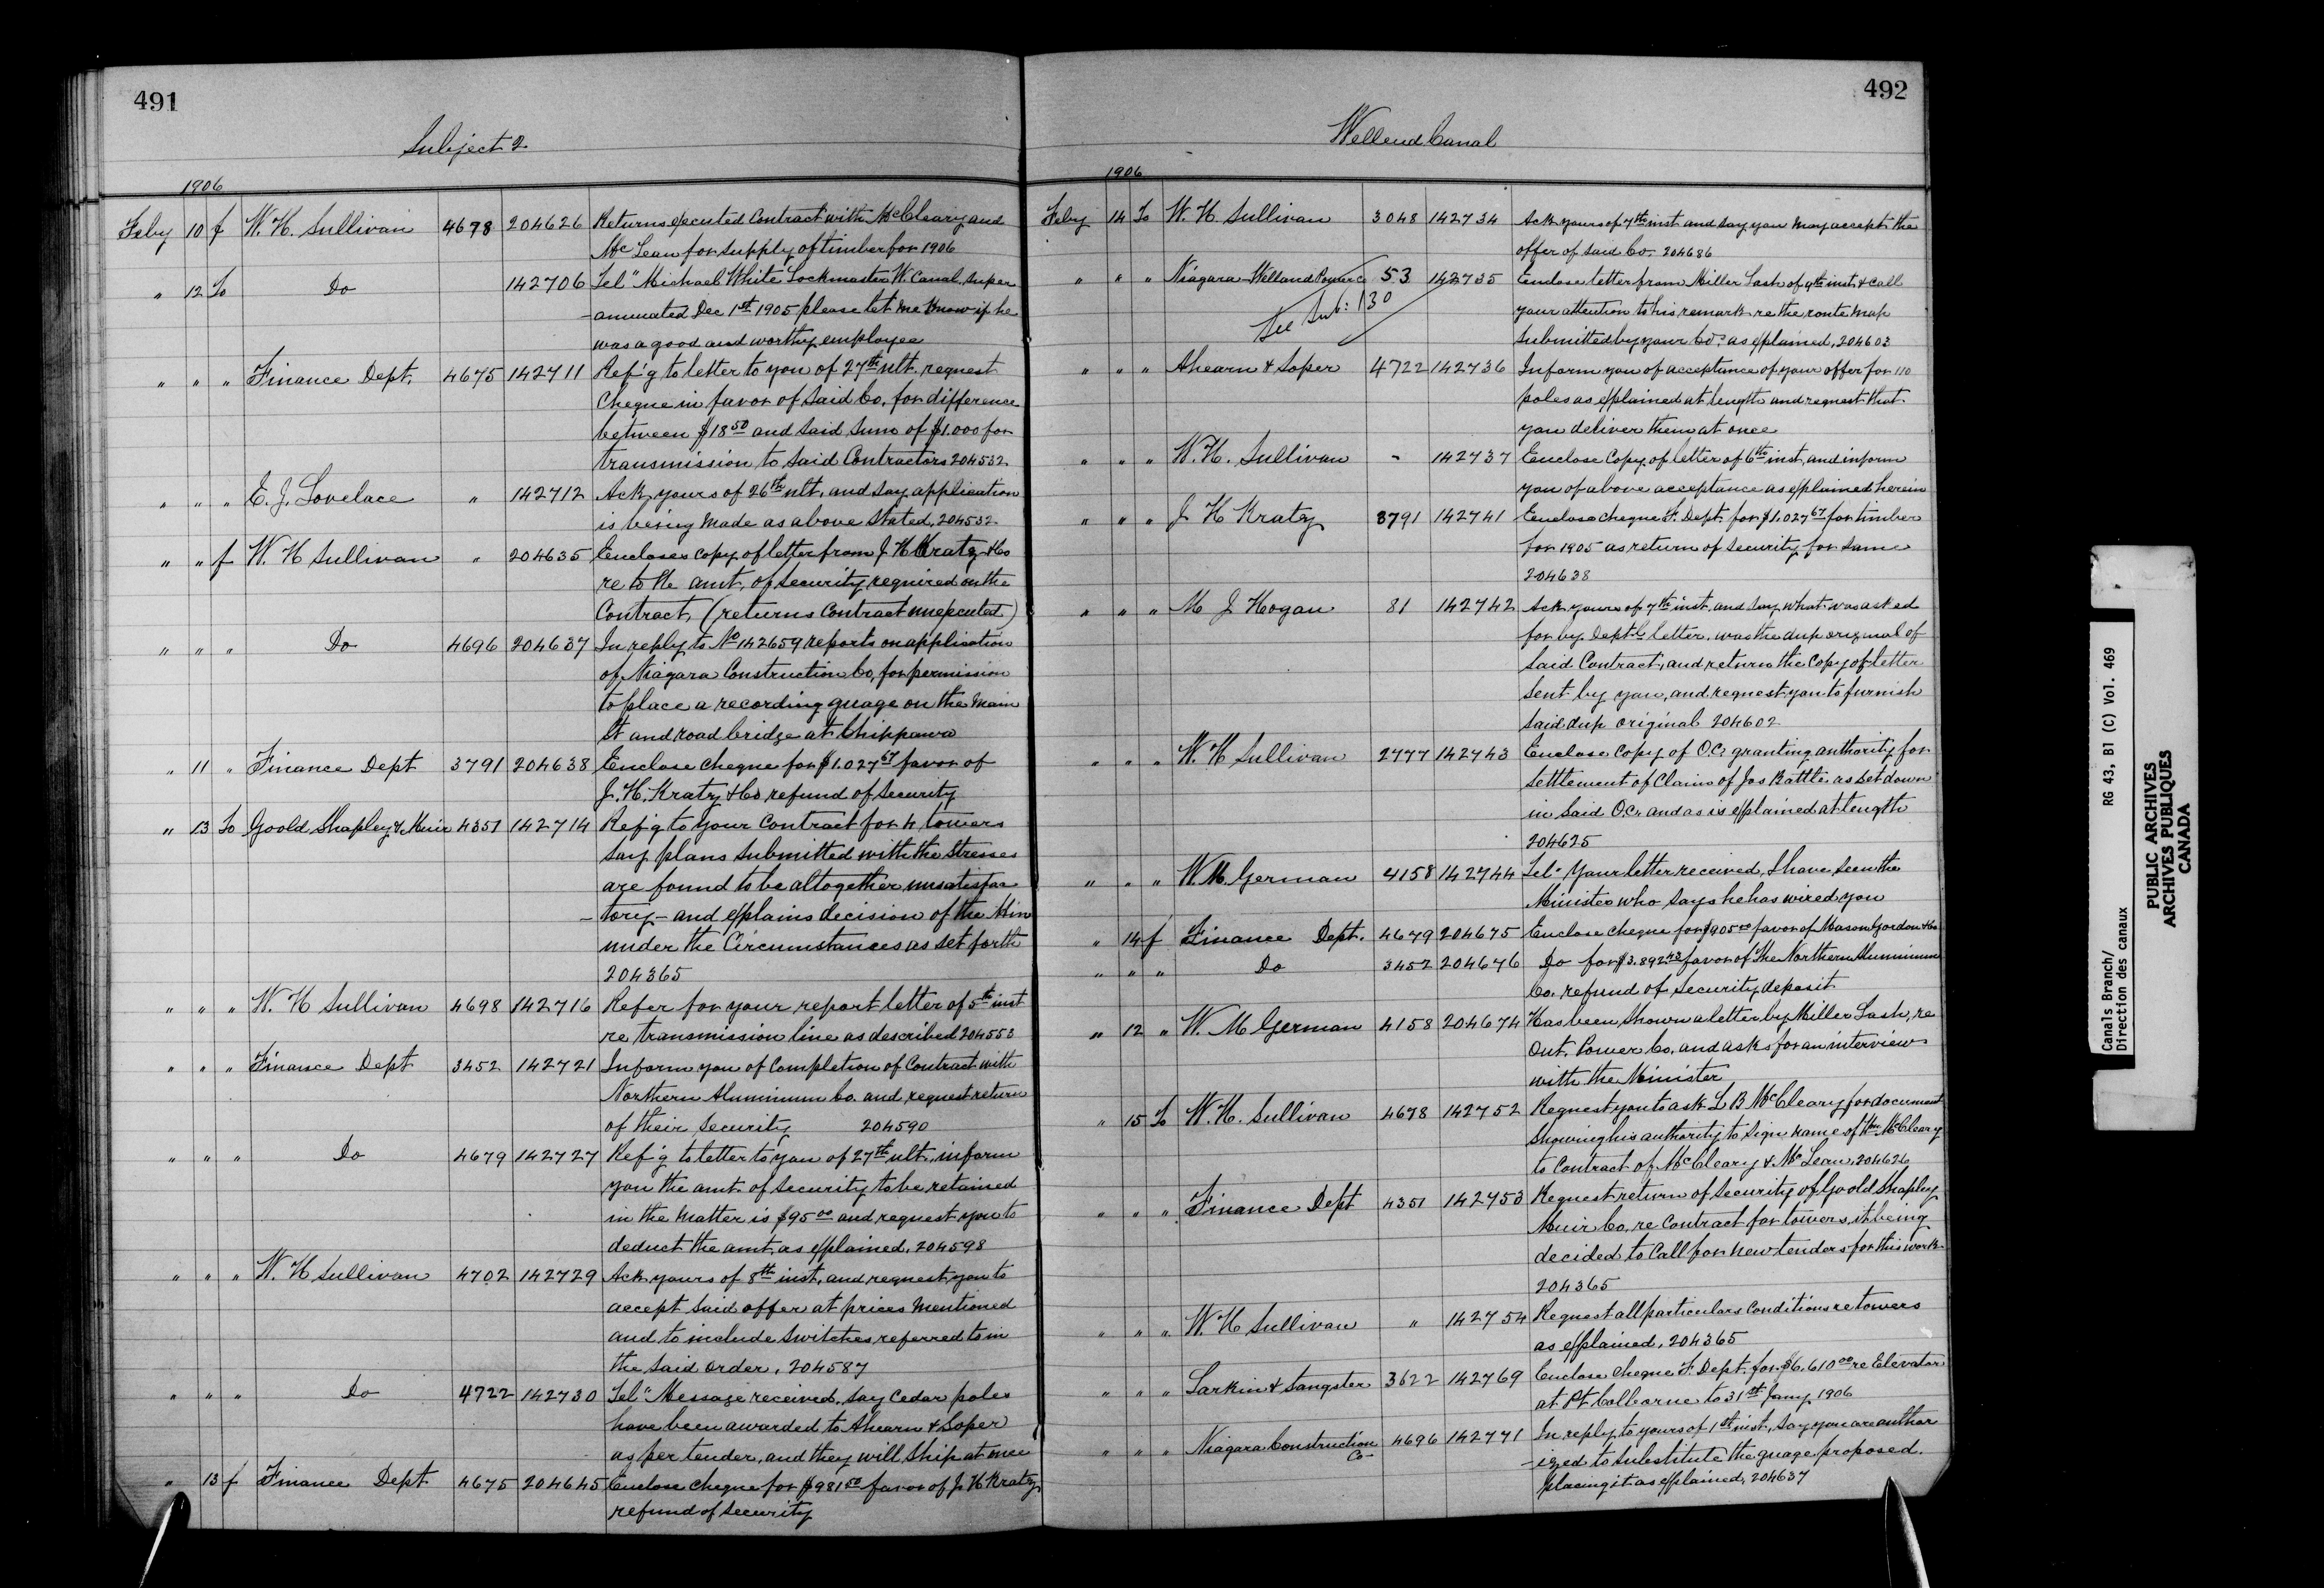 491
Subject 2
1906
Feby 10 f W. H. Sullivan 4678 204626 Returns executed Contract with McCleary and
McLean for supply of timber for 1906
" 12 To Do 142706 Tel" Michael White Lockmaster W. Canal super
-annuated Dec 1st 1905 please let me know if he
was a good and worthy employee
" " " Finance Dept. 4675 142711 Ref'g to letter to you of 27th ult. request
Cheque in favor of said Co. for difference
between $18 50 and said sum of $1.000 for
transmission to said Contractors 204532
" " " E. J. Lovelace " 142712 Ack yours of 26th ult. and say application
is being made as above stated. 204532
" " f W. H Sullivan " 204635 Encloses copy of letter from J H Kratz & Co
re to the amt. of security required on the
Contract, (returns Contract unexecuted)
" " " Do 4696 204637 In reply to No 142659 reports on application
of Niagara Construction Co, for permission
to place a recording guage on the main
St and road bridge at Chippawa
" 11 " Finance Dept 3791 204638 Enclose cheque for $1.027 67 favor of
J. H. Kratz & Co refund of security
" 13 To Goold Shapley & Muir 4351 142714 Ref'g to your Contract for 4 towers
say plans submitted with the stresses
are found to be altogether unsatisfac
-tory- and explains decision of the Min
under the Circumstances as set forth
204365
" " " W. H Sullivan 4698 142716 Refer for your report letter of 5th inst
re transmission line as described 204553
" " " Finance Dept 3452 142721 Inform you of Completion of Contract with
Northern Aluminum Co. and request return
of their security 204590
" " " Do 4679 142727 Ref'g to letter to you of 27th ult. inform
you the amt. of security to be retained
in the matter is $95 00 and request you to
deduct the amt. as explained. 204598
" " " W. H Sullivan 4702 142729 Ack yours of 8th inst. and request you to
accept said offer at prices mentioned
and to include switches referred to in
the said order. 204587
" " " Do 4722 142730 Tel" Message received. say Cedar poles
have been awarded to Ahearn & Soper
as per tender, and they will ship at once
" 13 f Finance Dept 4675 204645 Enclose cheque for $981 50 favor of J H Kratz
refund of security
492
Welland Canal
1906
Feby 14 To W. H Sullivan 3048 142734 Ack yours of 7th inst and say you may accept the
offer of said Co. 204686
" " " Niagara-Welland Power Co 53 142735 Enclose letter from Miller Lash of 9th inst. & call
See Sub: 130
your attention to his remark re the route map
submitted by your Co. as explained. 204603
" " " Ahearn & Soper 4722 142736 Inform you of acceptance of your offer for 110
poles as explained at length and request that
you deliver them at once
" " " W. H. Sullivan - 142737 Enclose copy of letter of 6th inst. and inform
you of above acceptance as explained herein
" " " J H Kratz 3791 142741 Enclose cheque F. Dept. for $1.027 67 for timber
for 1905 as return of security for same
204638
" " " M J Hogan 81 142742 Ack yours of 7th inst. and say what was asked
for by Deptl letter. was the dup original of
said Contract, and return the Copy of letter
sent by you, and request you to furnish
said dup original 204602
" " " W. H Sullivan 2777 142743 Enclose Copy of O.C. granting authority for
settlement of Claim of Jas Battle. as set down
in said O.C. and as is explained at length
204625
" " " W. M. German 4158 142744 Tel" Your letter received, I have seen the
Minister who says he has wired you
" 14 f Finance Dept. 4679 204675 Enclose cheque for $905 00 favor of Mason Gordon & Co
" " " Do 3452 204676 Do for $3.892 43 favor of The Northern Aluminum
Co. refund of security deposit
" 12 " W. M German 4158 204674 Has been shown a letter by Miller Lash, re
Ont. Power Co. and asks for an interview
with the Minister
" 15 To W. H. Sullivan 4678 142752 Request you to ask L B McCleary for document
showing his authority to sign name of Wm McCleary
to Contract of McCleary & McLean. 204626
" " " Finance Dept 4351 142753 Request return of security of Goold Shapley
Muir Co. re Contract for towers, it being
decided to Call for new tenders for this work
204365
" " " W. H Sullivan " 142754 Request all particulars Conditions re towers
as explained. 204365
" " " Larkin & Sangster 3622 142769 Enclose Cheque F. Dept. for $6.610 00 re Elevator
at Pt Colborne to 31st Jany 1906
" " " Niagara Construction Co- 4696 142771 In reply to yours of 1st inst. say you are author
-ized to substitute the guage proposed.
placing it as explained. 204637
Canals Branch/ RG 43, B1 (C) Vol. 469
Direction des canaux
PUBLIC ARCHIVES
ARCHIVES PUBLIQUES
CANADA